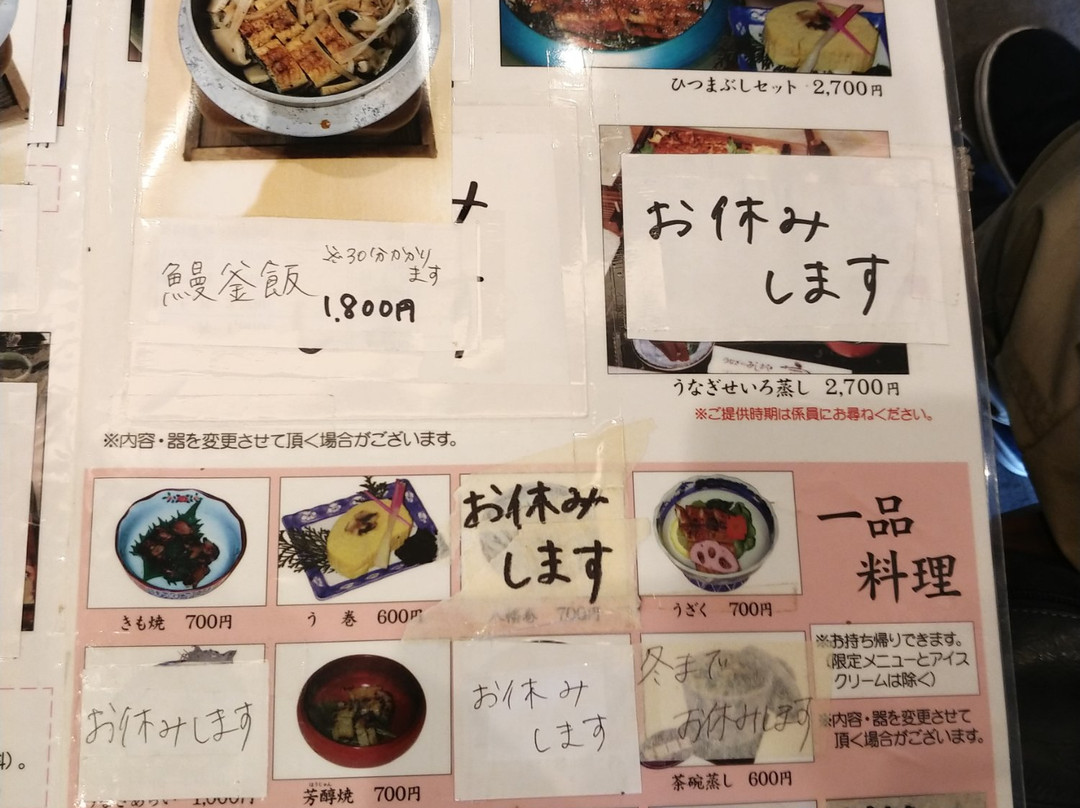 ひつまぶしセット 2,700円
お休み
します
鰻釜飯
※30分かかり
ます
1.800円
うなぎせいろ蒸し 2,700円
※ご提供時期は係員にお尋ねください。
※内容・器を変更させて頂く場合がございます。
一品
料理
お休み
します
きも焼 700円
う 巻 600円
八幡巻 700円
うざく 700円
※お持ち帰りできます。
(限定メニューとアイス
クリームは除く)
※内容・器を変更させて
頂く場合がございます。
お休みします
お休み
します
冬まで
お休みします
うなぎあらい 1,000円
ほうじゅん
芳醇焼 700円
茶碗蒸し 600円